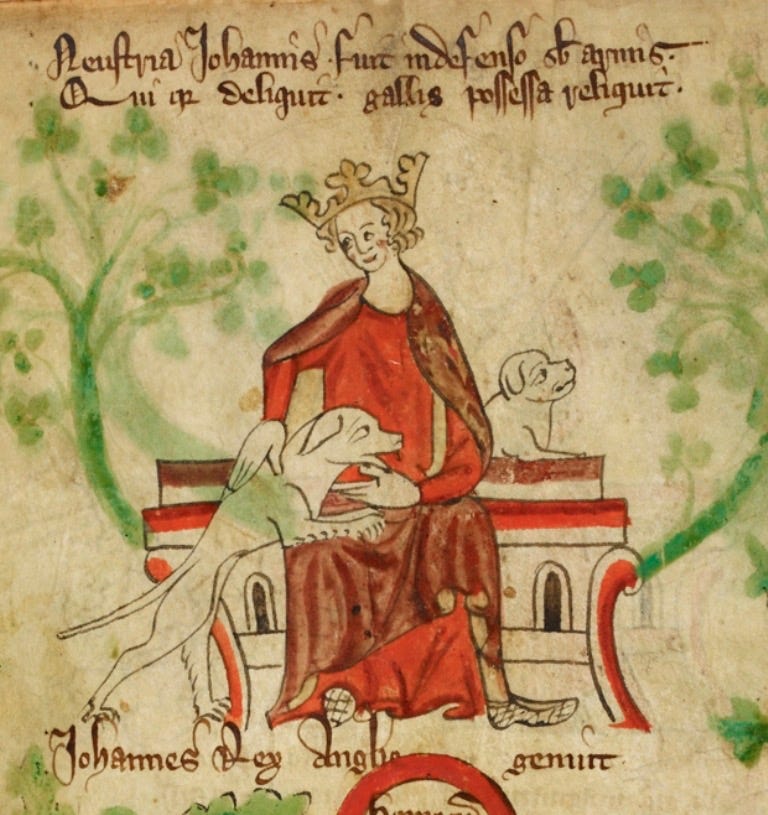 Neustria Johannis · fuit indefenso sb armis ·
Qui qr deliquit · gallis possessa reliquit ·
Johannes Rex Anglie genuit